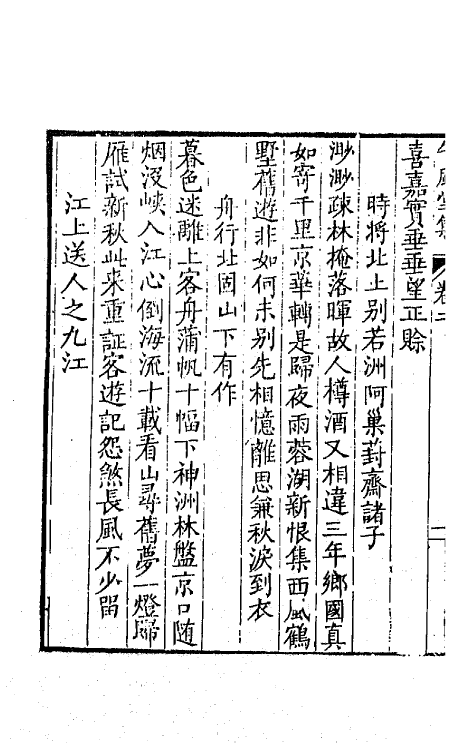 風室集 卷二
喜嘉實垂垂望正賒
時將北上別若洲阿巢葑齋諸子
渺渺疎林掩落暉故人樽酒又相違三年鄉國真
如寄千里京華轉是歸夜雨蓉湖新恨集西風鶴
墅舊遊非如何未別先相憶離思兼秋淚到衣
舟行北固山下有作
暮色迷離上客舟蒲帆十幅下神洲林盤京口随
烟沒峽入江心倒海流十載看山尋舊夢一燈歸
雁試新秋此来重証客遊記怨煞長風不少留
江上送人之九江